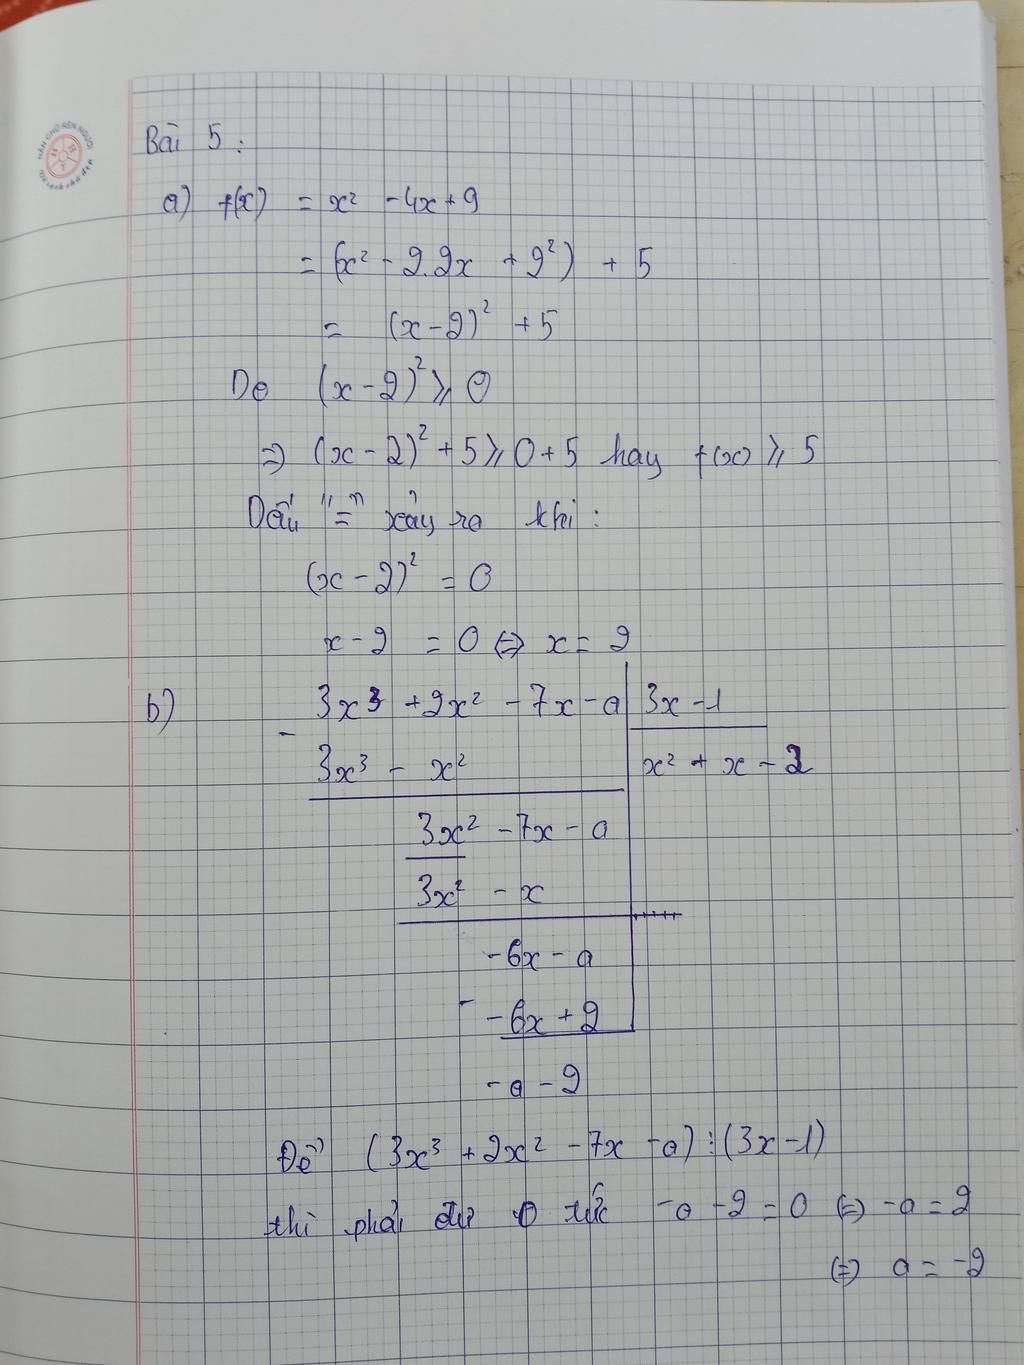 Bài 5:
a) f(x) = x² - 4x + 9
= (x² - 2.2x + 2²) + 5
= (x - 2)² + 5
Do (x - 2)² ⩾ 0
⇒ (x - 2)² + 5 ⩾ 0 + 5 hay f(x) ⩾ 5
Dấu "=" xảy ra khi:
(x - 2)² = 0
x - 2 = 0 ⇔ x = 2
b) 3x³ + 2x² - 7x - a | 3x - 1
- 3x³ - x² | x² + x - 2
3x² - 7x - a
3x² - x
-6x - a
- -6x + 2
-a - 2
Để (3x³ + 2x² - 7x - a) ⋮ (3x - 1)
thì phải dư 0 tức -a - 2 = 0 ⇔ -a = 2
⇔ a = -2